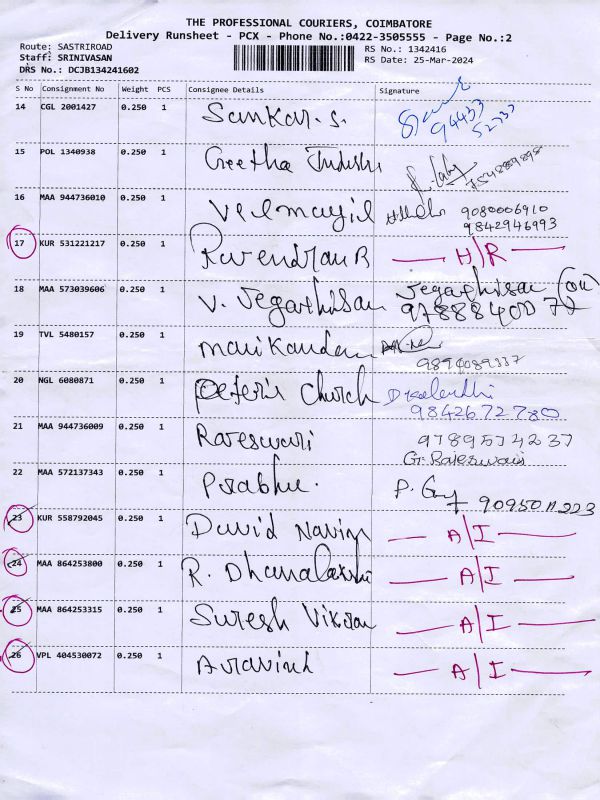 THE PROFESSIONAL COURIERS, COIMBATORE
Delivery Runsheet - PCX - Phone No.:0422-3505555 - Page No.:2
Route: SASTRIROAD RS No.: 1342416
Staff: SRINIVASAN RS Date: 25-Mar-2024
DRS No.: DCJB134241602
S No Consignment No Weight PCS Consignee Details Signature
14 CGL 2001427 0.250 1 Sankar. S. 94433
52737
15 POL 1340938 0.250 1 Geetha
16 MAA 944736010 0.250 1 Velmayil 9080006910
9842946993
17 KUR 531221217 0.250 1 Ravendran R H/R
18 MAA 573039606 0.250 1 V. Jegathisan Jegathisan
19 TVL 5480157 0.250 1 Manikandan
9894089337
20 NGL 6080871 0.250 1 Peter's Church
9842672780
21 MAA 944736009 0.250 1 Rajeswari 9789574237
G. Rajeswari
22 MAA 572137343 0.250 1 Prabhu.
23 KUR 558792045 0.250 1 David Navin A/I
24 MAA 864253800 0.250 1 R. Dhanalakshi A/I
25 MAA 864253315 0.250 1 Suresh Vikram A/I
26 VPL 404530072 0.250 1 Aravind A/I